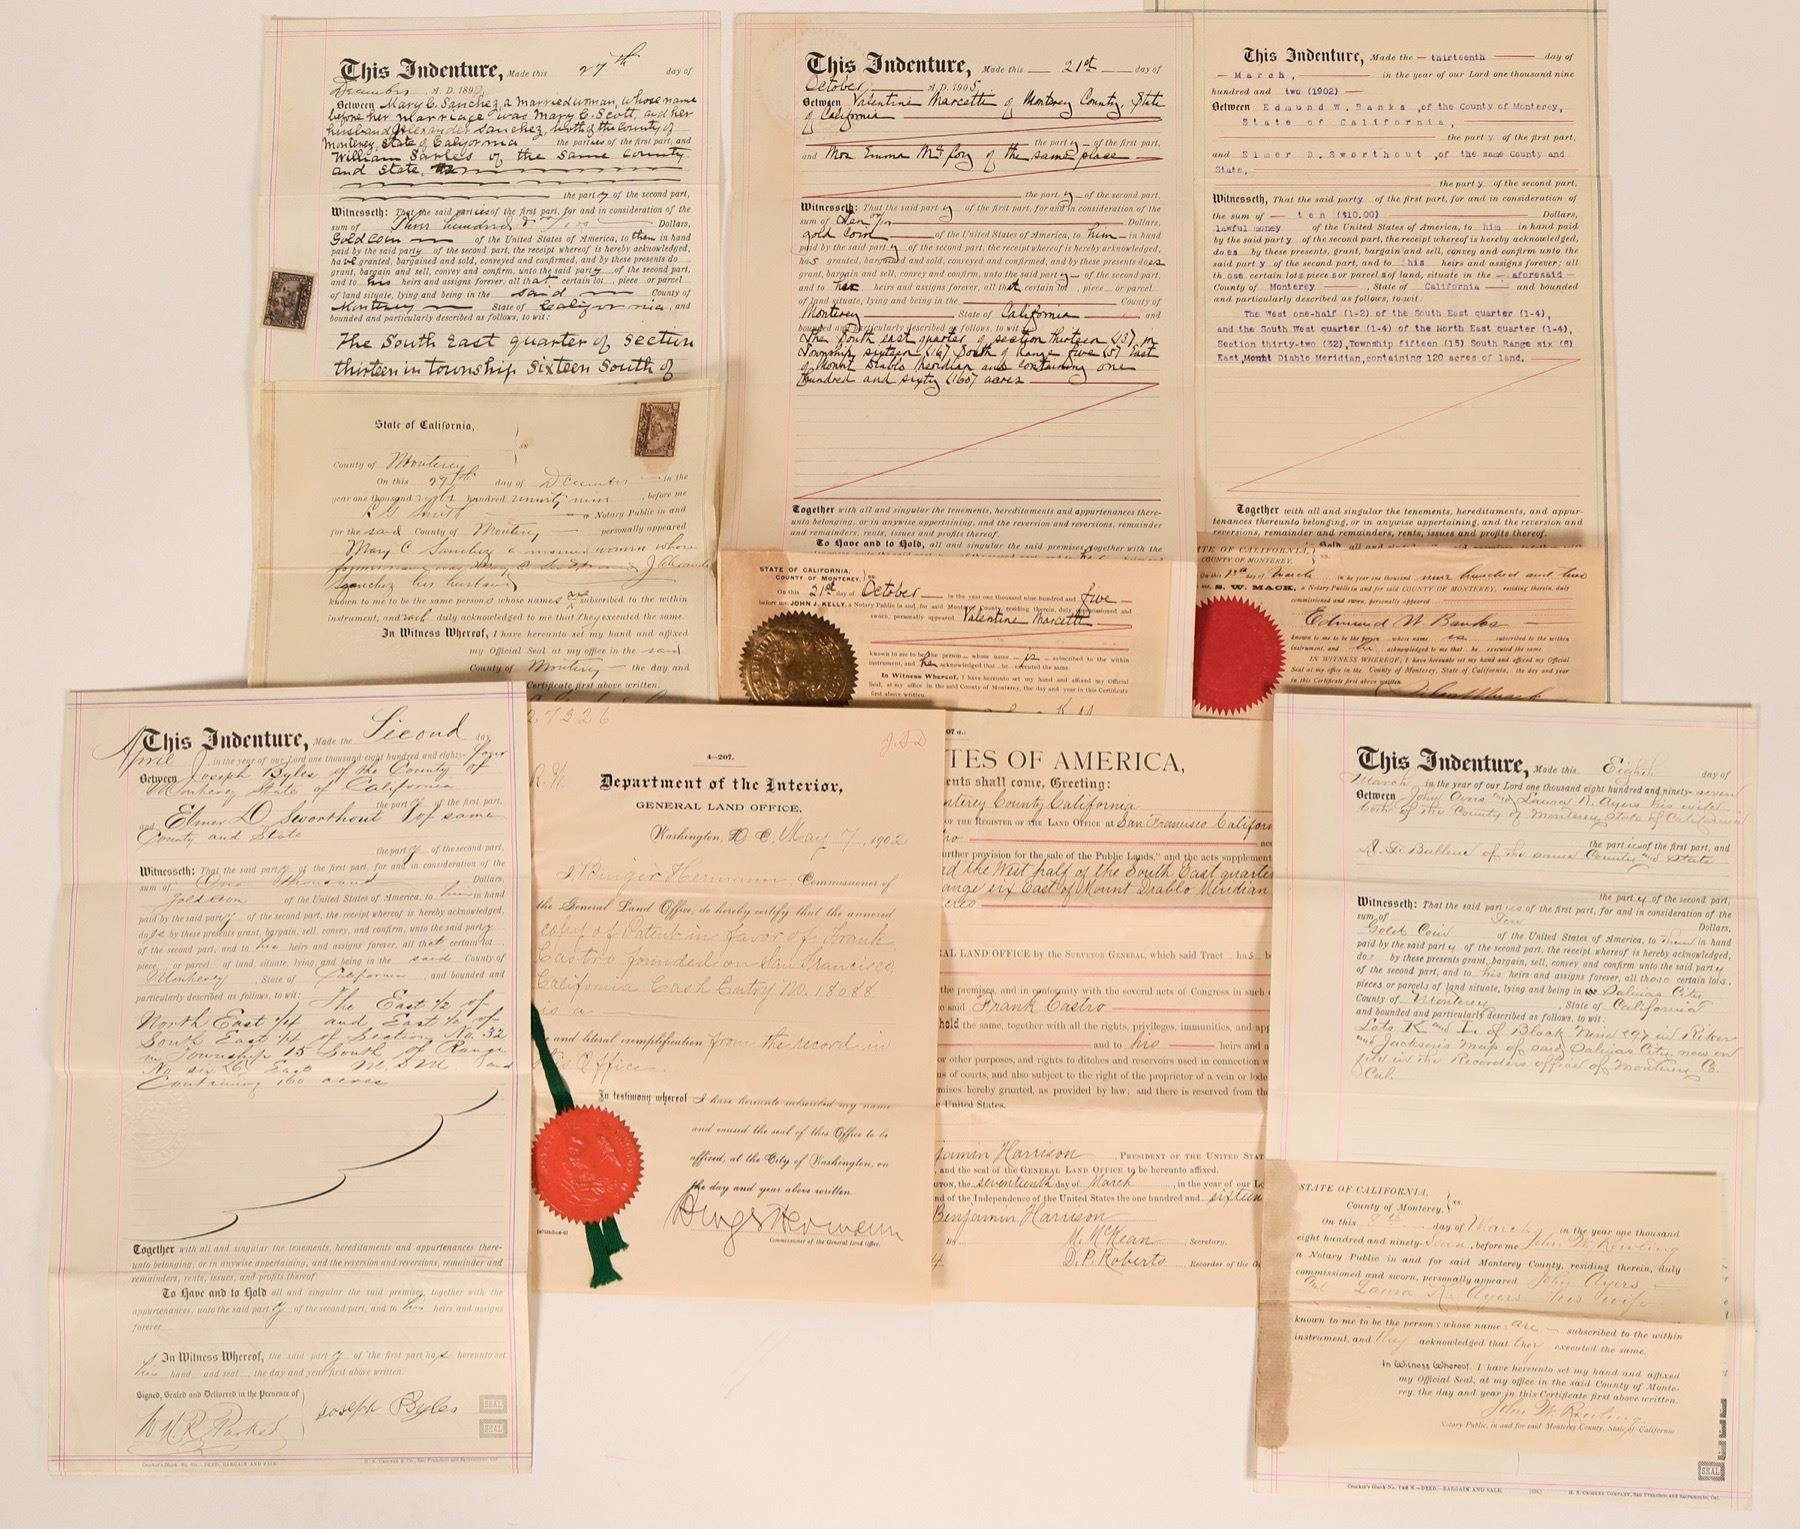 This Indenture, Made this 27th day of
December, A. D. 1899
Between Mary C. Sanchez, a married woman, whose name
before her marriage was Mary C. Scott, and her
husband Alexander Sanchez, both of the County of
Monterey, State of California the parties of the first part, and
William Sarles of the same County
and State,
the party of the second part,
Witnesseth: That the said parties of the first part, for and in consideration of the
sum of Three hundred Dollars,
Gold Coin of the United States of America, to them in hand
paid by the said party of the second part, the receipt whereof is hereby acknowledged,
have granted, bargained and sold, conveyed and confirmed, and by these presents do
grant, bargain and sell, convey and confirm, unto the said party of the second part,
and to his heirs and assigns forever, all that certain lot, piece or parcel
of land situate, lying and being in the said County of
Monterey State of California, and
bounded and particularly described as follows, to wit:
The South East quarter of Section
thirteen in township Sixteen South of
State of California,
ss
County of Monterey
On this 29th day of December in the
year one thousand eight hundred ninety nine, before me
Smith Notary Public in and
for the said County of Monterey personally appeared
Mary C Sanchez a married woman whose
Sanchez his husband
known to me to be the same persons whose names are subscribed to the within
instrument, and each duly acknowledged to me that They executed the same.
In Witness Whereof, I have hereunto set my hand and affixed
my Official Seal at my office in the said
County of Monterey the day and
Certificate first above written.
This Indenture, Made this 21st day of
October A. D. 1905
Between Valentine Marcetti of Monterey County, State
of California
the party of the first part,
and Mrs Emma of the same place
the party of the second part,
Witnesseth: That the said party of the first part, for and in consideration of the
sum of Ten Dollars,
gold coin of the United States of America, to him in hand
paid by the said party of the second part, the receipt whereof is hereby acknowledged,
has granted, bargained and sold, conveyed and confirmed, and by these presents does
grant, bargain and sell, convey and confirm, unto the said party of the second part,
and to her heirs and assigns forever, all that certain lot, piece or parcel
of land situate, lying and being in the County of
Monterey State of California and
bounded and particularly described as follows, to wit:
The South east quarter of section thirteen (13) in
Township sixteen (16) South of Range five (5) East
of Mount Diablo Meridian and containing one
hundred and sixty (160) acres
Together with all and singular the tenements, hereditaments and appurtenances there-
unto belonging, or in anywise appertaining, and the reversion and reversions, remainder
and remainders, rents, issues and profits thereof.
To Have and to Hold, all and singular the said premises, together with the
STATE OF CALIFORNIA,
COUNTY OF MONTEREY, } ss.
On this 21st day of October in the year one thousand nine hundred and five
before me, JOHN J. KELLY, a Notary Public in and for said Monterey County, residing therein, duly commissioned and
sworn, personally appeared Valentine Marcetti
known to me to be the person whose name is subscribed to the within
instrument, and he acknowledged that he executed the same.
In Witness Whereof, I have hereunto set my hand and affixed my Official
Seal, at my office in the said County of Monterey, the day and year in this Certificate
first above written.
This Indenture, Made the thirteenth day of
March, in the year of our Lord one thousand nine
hundred and two (1902)
Between Edmund W. Banks, of the County of Monterey,
State of California,
the party of the first part,
and Elmer D. Sworthout, of the same County and
State,
the party of the second part,
Witnesseth, That the said party of the first part, for and in consideration of
the sum of ten ($10.00) Dollars,
lawful money of the United States of America, to him in hand paid
by the said party of the second part, the receipt whereof is hereby acknowledged,
does by these presents, grant, bargain and sell, convey and confirm unto the
said party of the second part, and to his heirs and assigns forever; all
those certain lots pieces or parcels of land, situate, in the aforesaid
County of Monterey, State of California and bounded
and particularly described as follows, to-wit:
The West one-half (1-2) of the South East quarter (1-4),
and the South West quarter (1-4) of the North East quarter (1-4),
Section thirty-two (32), Township fifteen (15) South Range six (6)
East, Mount Diablo Meridian, containing 120 acres of land.
Together with all and singular the tenements, hereditaments and appur-
tenances thereunto belonging, or in anywise appertaining, and the reversion and
reversions, remainder and remainders, rents, issues and profits thereof.
STATE OF CALIFORNIA, } ss.
COUNTY OF MONTEREY,
On this 13th day of March in the year one thousand nine hundred and two
me, S. W. MACK, a Notary Public in and for said COUNTY OF MONTEREY, residing therein, duly
commissioned and sworn, personally appeared
Edmund W Banks
known to me to be the person whose name is subscribed to the within
instrument, and he acknowledged to me that he executed the same.
IN WITNESS WHEREOF, I have hereunto set my hand and affixed my Official
Seal at my office in the County of Monterey, State of California, the day and year
in this Certificate first above written.
This Indenture, Made the Second day
April in the year of our Lord one thousand eight hundred and eighty-four
Between Joseph Byles of the County of
Monterey State of California
the party of the first part,
and Elmer D Sworthout of same
County and State
the party of the second part,
Witnesseth: That the said party of the first part, for and in consideration of the
sum of One thousand Dollars,
gold coin of the United States of America, to him in hand
paid by the said party of the second part, the receipt whereof is hereby acknowledged,
does by these presents grant, bargain, sell, convey and confirm, unto the said party
of the second part, and to his heirs and assigns forever, all that certain lot,
piece or parcel of land, situate, lying, and being in the said County of
Monterey, State of California, and bounded and
particularly described as follows, to wit: The East 1/2 of
North East 1/4 and East 1/2 of
South East 1/4 of Section No. 32
in Township 15 South of Range
No six 6, East M.D.M and
Containing 160 acres
Together with all and singular the tenements, hereditaments and appurtenances there-
unto belonging, or in anywise appertaining, and the reversion and reversions, remainder and
remainders, rents, issues, and profits thereof.
To Have and to Hold all and singular the said premises, together with the
appurtenances, unto the said party of the second part, and to his heirs and assigns
forever.
In Witness Whereof, the said party of the first part has hereunto set
his hand and seal, the day and year first above written.
Signed, Sealed and Delivered in the Presence of
W. H. R. Parker
Joseph Byles
SEAL
SEAL
DEED, BARGAIN AND SALE.
H. S. CROCKER & CO., San Francisco and Sacramento, Cal.
27326
J.A.D
4-207.
Department of the Interior,
GENERAL LAND OFFICE,
Washington, D. C. May 7, 1902
I, Binger Hermann, Commissioner of
the General Land Office, do hereby certify that the annexed
copy of Patent in favor of Frank
Castro founded on San Francisco,
California Cash Entry No. 18088
is a
e and literal exemplification from the record in
this Office.
In testimony whereof I have hereunto subscribed my name
and caused the seal of this Office to be
affixed, at the City of Washington, on
the day and year above written.
Binger Hermann
Commissioner of the General Land Office.
TES OF AMERICA,
ents shall come, Greeting:
nterey County California
OF THE REGISTER OF THE LAND OFFICE at San Francisco Californ
urther provision for the sale of the Public Lands," and the acts supplement
nd the West half of the South East quarter
ange six East of Mount Diablo Meridian
AL LAND OFFICE by the SURVEYOR GENERAL, which said Tract has b
the premises, and in conformity with the several acts of Congress in such
said Frank Castro
hold the same, together with all the rights, privileges, immunities, and app
and to his heirs and a
or other purposes, and rights to ditches and reservoirs used in connection w
s of courts, and also subject to the right of the proprietor of a vein or lode
mises hereby granted, as provided by law; and there is reserved from the
e United States.
jamin Harrison, PRESIDENT OF THE UNITED STAT
, and the seal of the GENERAL LAND OFFICE to be hereunto affixed.
GTON, the seventeenth day of March, in the year of our Lo
nd of the Independence of the United States the one hundred and sixteen
Benjamin Harrison
By M. McKean Secretary.
D. P. Roberts, Recorder of the G
This Indenture, Made this Eighth day of
March in the year of our Lord one thousand eight hundred and ninety-seven
Between John Ayers and Laura K. Ayers his wife
both of the County of Monterey State of California
the parties of the first part, and
of the same County and State
the party of the second part,
Witnesseth: That the said parties of the first part, for and in consideration of the
sum of Ten Dollars,
Gold Coin of the United States of America, to them in hand
paid by the said party of the second part, the receipt whereof is hereby acknowledged,
do by these presents, grant, bargain, sell, convey and confirm unto the said party
of the second part, and to his heirs and assigns forever, all those certain lots,
pieces or parcels of land, situate, lying and being in Salinas City
County of Monterey State of California
and bounded and particularly described as follows, to wit:
Lots K and L of Block Nine (9) in Riker
and Jackson's map of said Salinas City, now on
file in the Recorders office of Monterey Co.
Cal.
STATE OF CALIFORNIA, } ss.
County of Monterey,
On this 8th day of March in the year one thousand
eight hundred and ninety-seven, before me John W. Rowling
a Notary Public in and for said Monterey County, residing therein, duly
commissioned and sworn, personally appeared John Ayers
and Laura K. Ayers his wife
known to me to be the persons whose names are subscribed to the within
instrument, and they acknowledged that they executed the same.
In Witness Whereof, I have hereunto set my hand and affixed
my Official Seal, at my office in the said County of Monte-
rey, the day and year in this Certificate first above written.
John W. Rowling
Notary Public, in and for said Monterey County, State of California
SEAL
DEED, BARGAIN AND SALE.
H. S. CROCKER COMPANY, San Francisco and Sacramento, Cal.